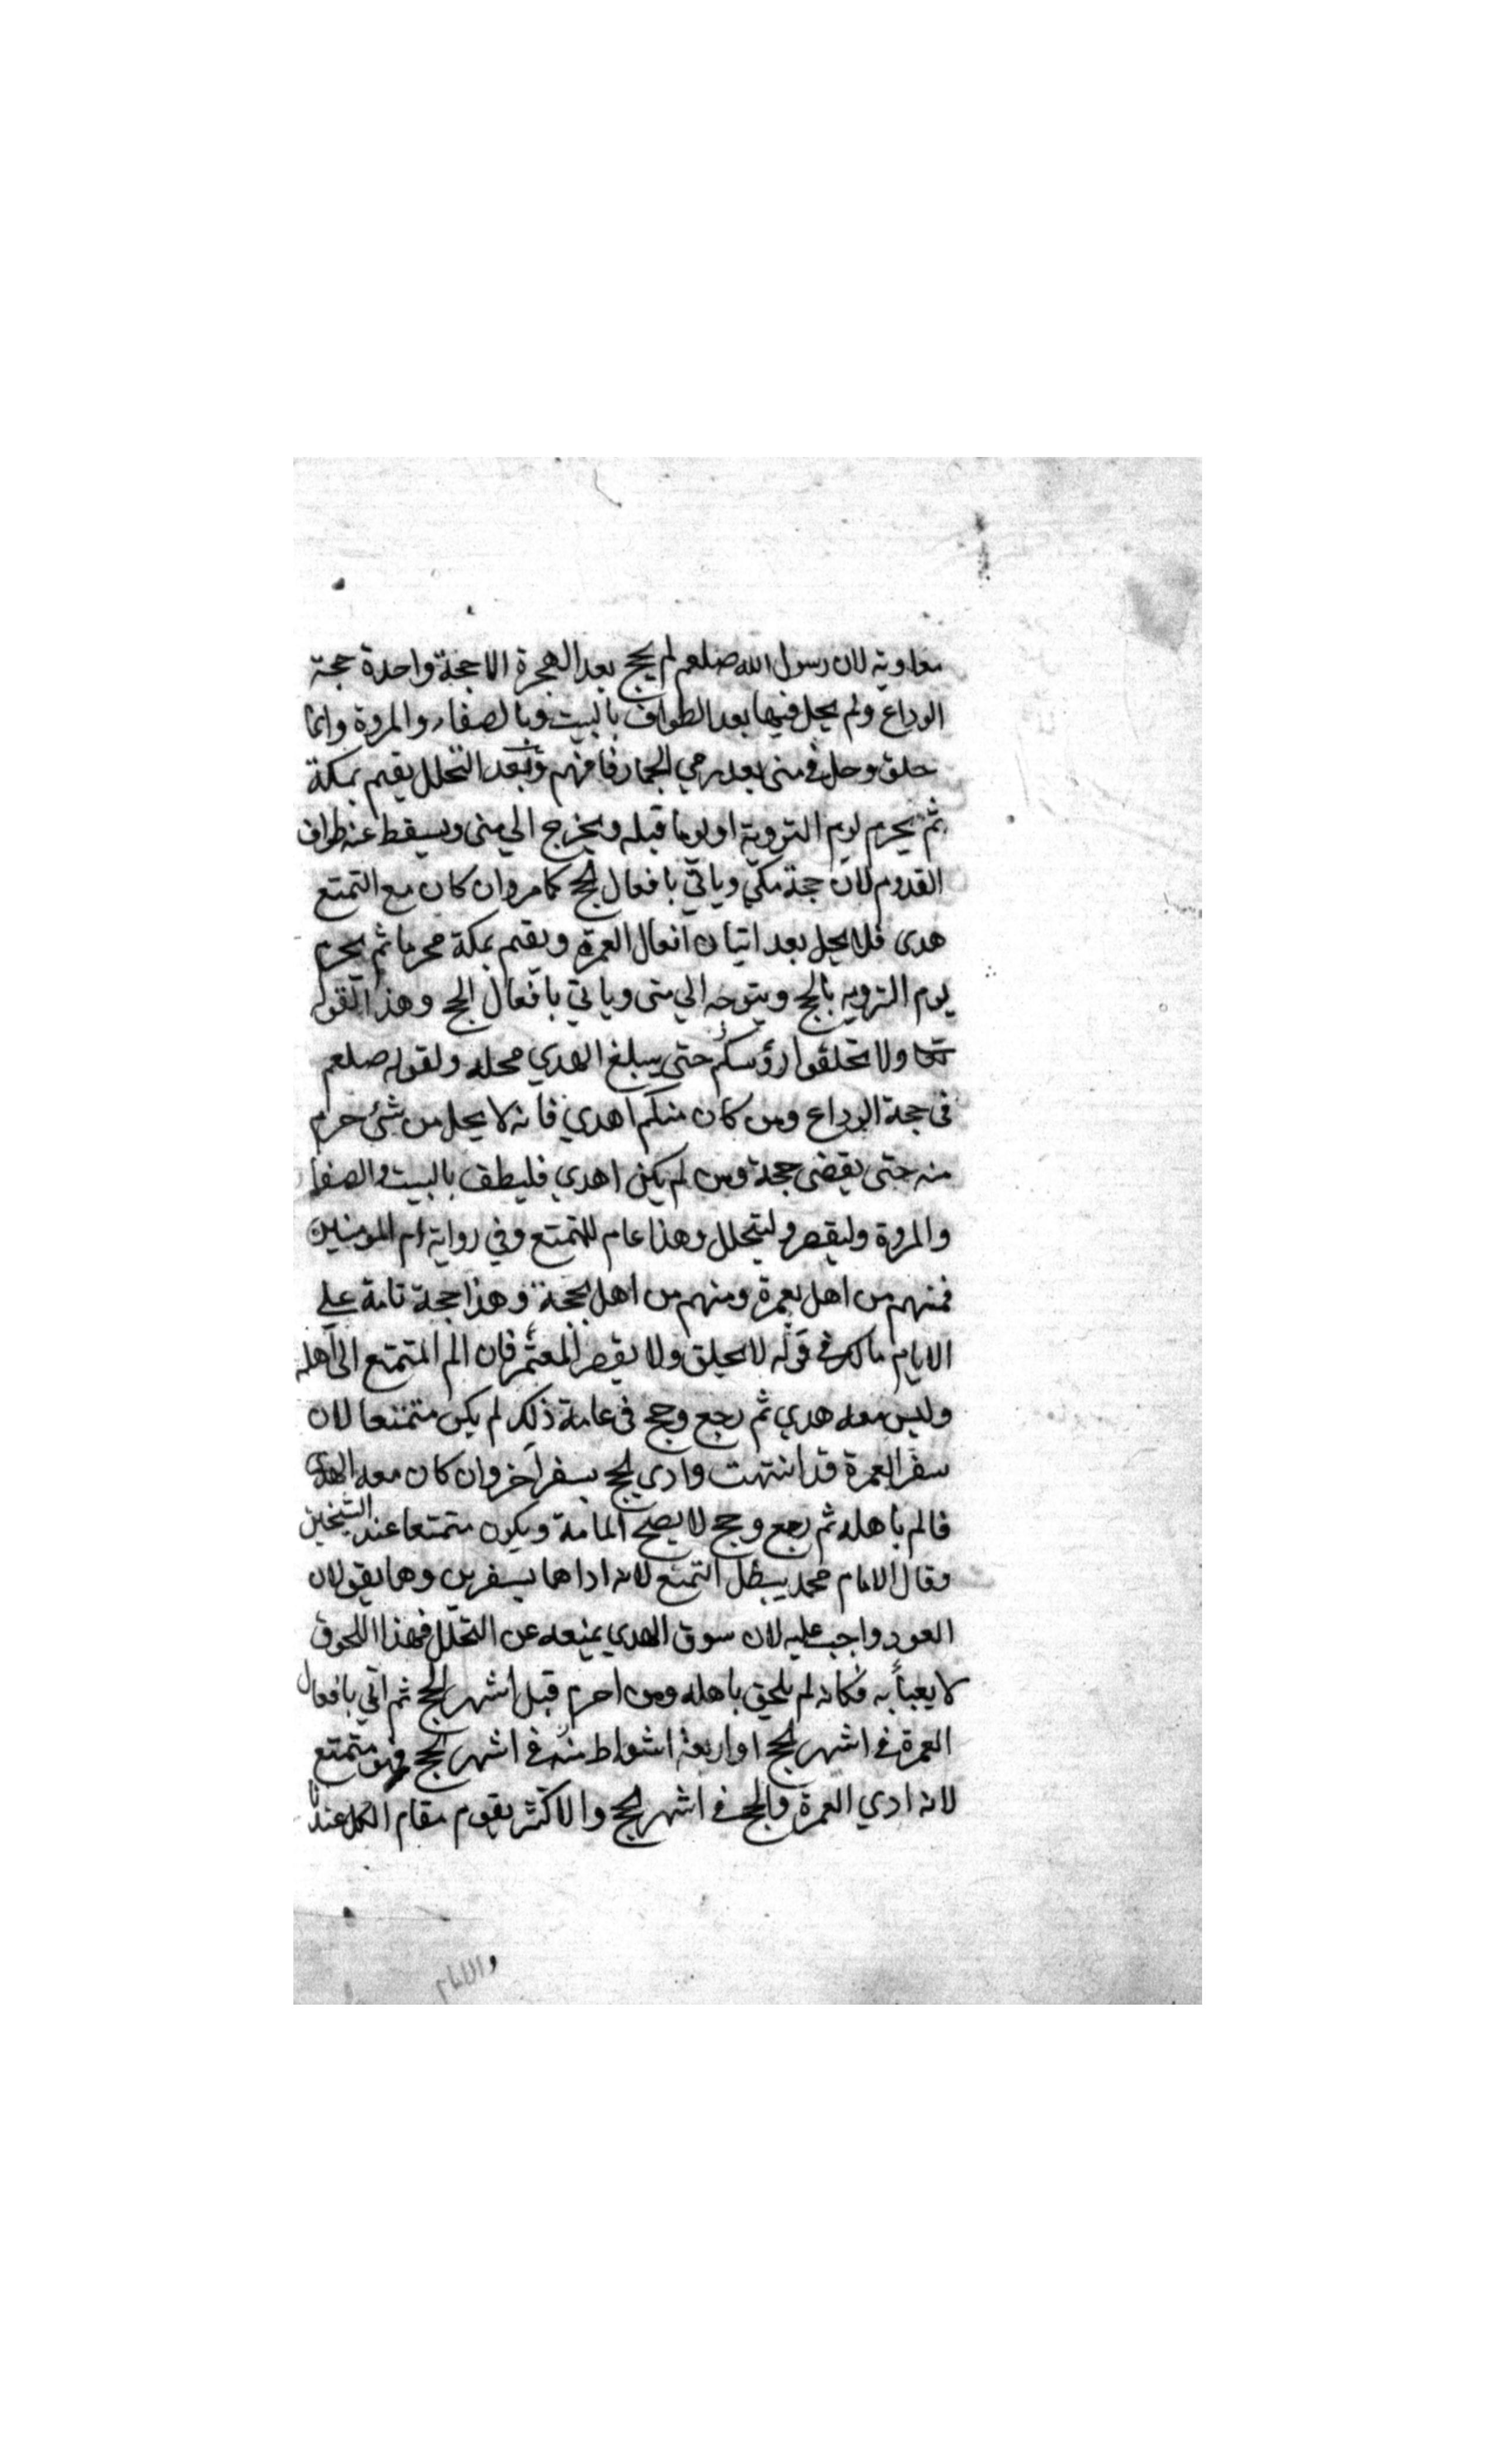 معاوية لان رسول الله صلعم لم يحج بعد الهجرة الا حجة واحدة حجة
الوداع ولم يحل فيها بعد الطواف بالبيت وبالصفا والمروة وانما
حلق وحل في منى بعد رمي الجمار فافهم وبعد التحلل يقيم بمكة
ثم يحرم يوم التروية او يوما قبله ويخرج الي منى ويسقط عنه طواف
القدوم لان حجة مكي وياتي بافعال الحج كما مر وان كان مع التمتع
هدى فلا يحل بعد اتيان افعال العمرة ويقيم بمكة محرما ثم يحرم
يوم التروية بالحج ويتوجه الي منى وياتي بافعال الحج وهذا لقوله
تعا ولا تحلقوا رؤسكم حتى يبلغ الهدي محله ولقوله صلعم
في حجة الوداع ومن كان منكم اهدي فانه لا يحل من شئ حرم
منه حتى يقضى حجة ومن لم يكن اهدي فليطف بالبيت والصفا
والمروة وليقصر وليتحلل وهذا عام للتمتع وفي رواية ام المومنين
فمنهم من اهل بعمرة ومنهم من اهل بحجة وهذا حجة تامة علي
الايام مالك في قوله لا يحلق ولا يقصر المعتمر فان الم المتمتع الى اهله
وليس معه هدي ثم رجع وحج في عامة ذلك لم يكن متمتعا لان
سفر العمرة قد انتهت وادي الحج بسفر آخر وان كان معه الهدى
فالم باهله ثم رجع وحج لا يصح المامة ويكون متمتعا عند الشيخين
وقال الامام محمد يبطل التمتع لانه اداهما بسفرين وهما يقولان
العود واجب عليه لان سوق الهدي يمنعه عن التحلل فهذا اللحوق
لا يعبأ به فكانه لم يلحق باهله ومن احرم قبل اشهر الحج ثم اتي بافعال
العمرة في اشهر الحج او اربعة اشواط منه في اشهر الحج فهو متمتع
لانه ادي العمرة والحج في اشهر الحج والاكثر يقوم مقام الكل عندنا